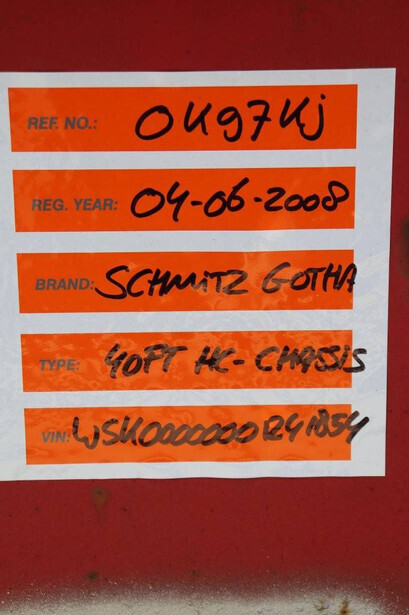 REF. NO.: OK97KJ
REG. YEAR: 04-06-2008
BRAND: SCHMITZ GOTHA
TYPE: 40FT HC-CHASSIS
VIN: WSK0000000R41854